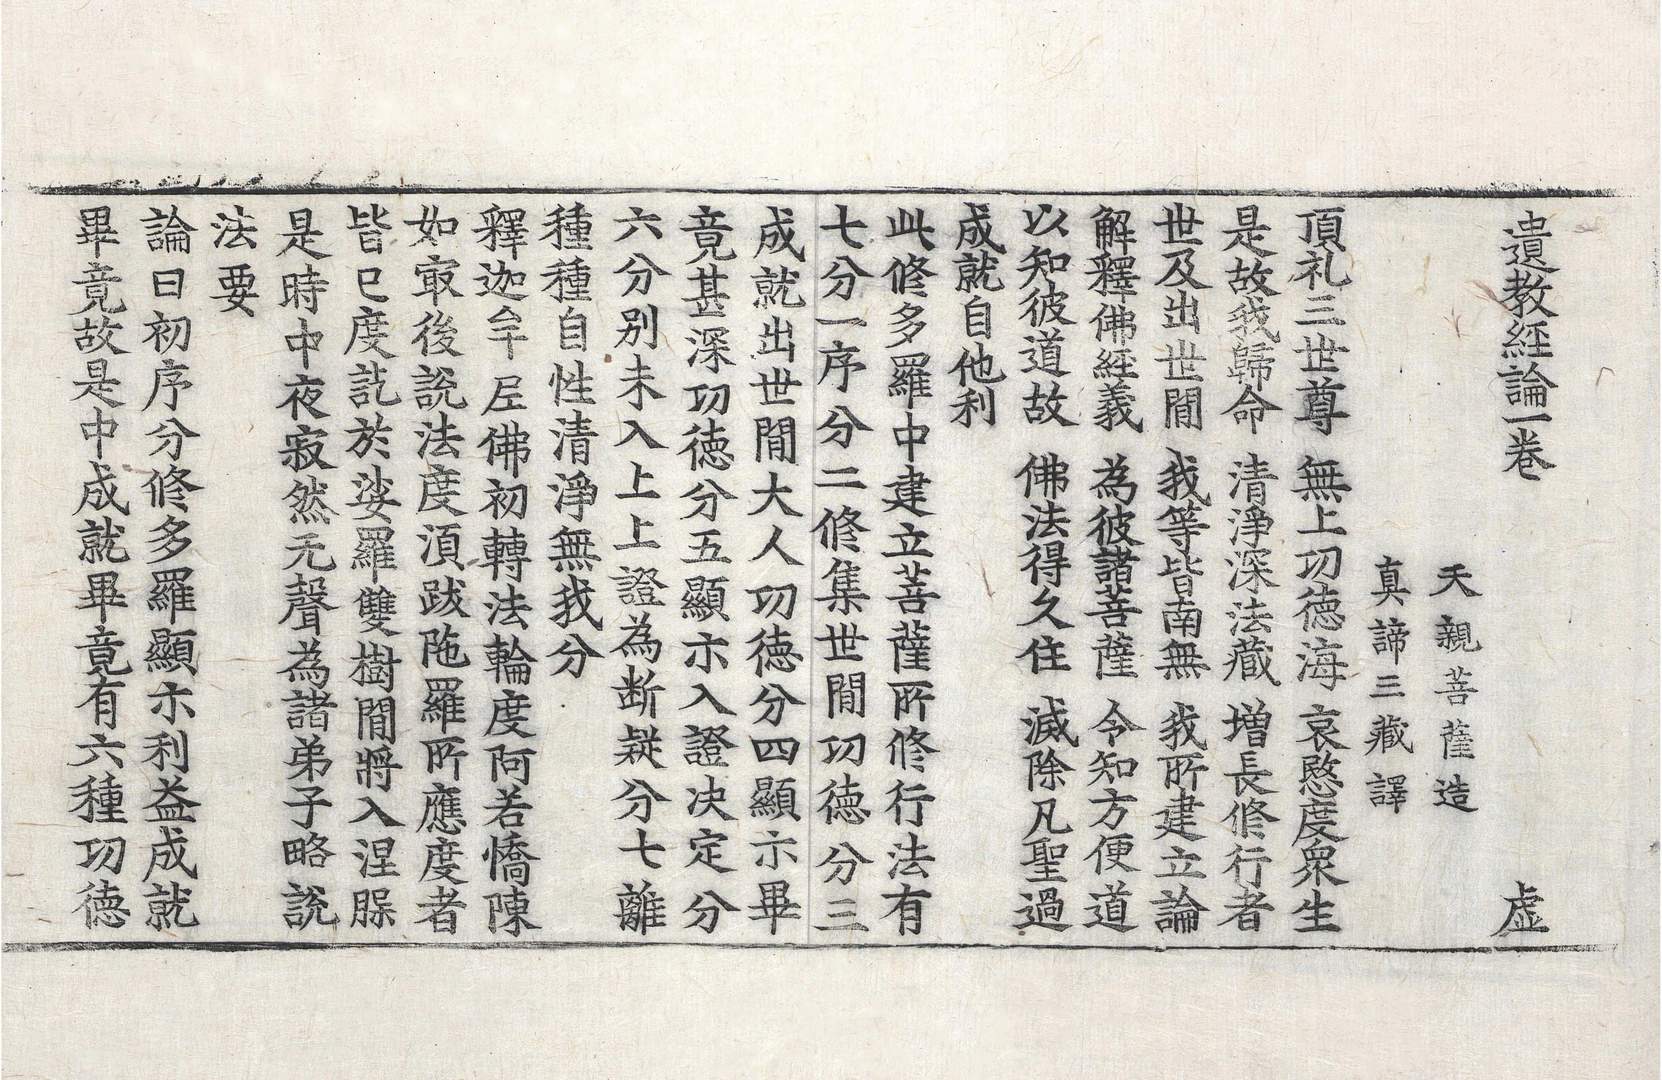 遺教経論一卷 虛
天親菩薩造
真諦三藏譯
頂礼三世尊 無上功徳海 哀愍度衆生
是故我歸命 清淨深法藏 增長修行者
世及出世間 我等皆南無 我所建立論
解釋佛經義 為彼諸菩薩 令知方便道
以知彼道故 佛法得久住 滅除凡聖過
成就自他利
此修多羅中建立菩薩所修行法有
七分一序分二修集世間功徳分三
成就出世間大人功徳分四顯示畢
竟甚深功徳分五顯示入證决定分
六分别未入上上證為断疑分七離
種種自性清淨無我分
釋迦牟𡰱佛初轉法輪度阿若憍陳
如㝡後說法度湏跋陁羅所應度者
皆已度訖於娑羅雙樹間將入涅槃
是時中夜寂然无聲為諸弟子略說
法要
論曰初序分修多羅顯示利益成就
畢竟故是中成就畢竟有六種功徳